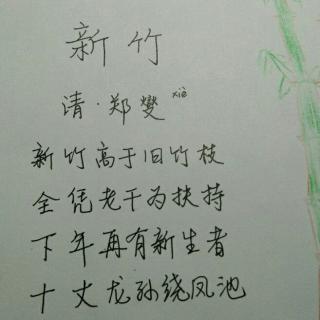 新竹
清·郑燮 xiè
新竹高于旧竹枝
全凭老干为扶持
下年再有新生者
十丈龙孙绕凤池